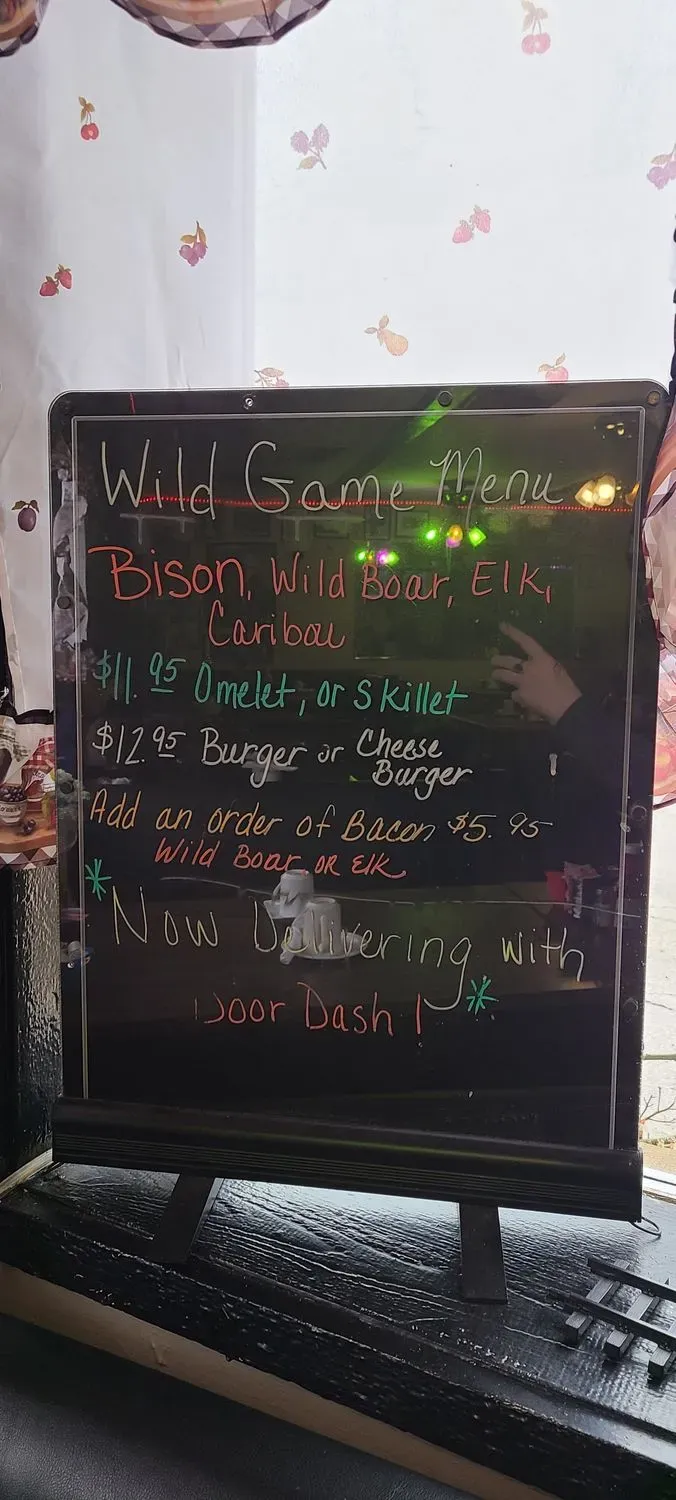 Wild Game Menu
Bison, Wild Boar, Elk,
Caribou
$11.95 Omelet, or Skillet
$12.95 Burger or Cheese
Burger
Add an order of Bacon $5.95
Wild Boar, OR Elk
*Now Delivering with
Door Dash!*